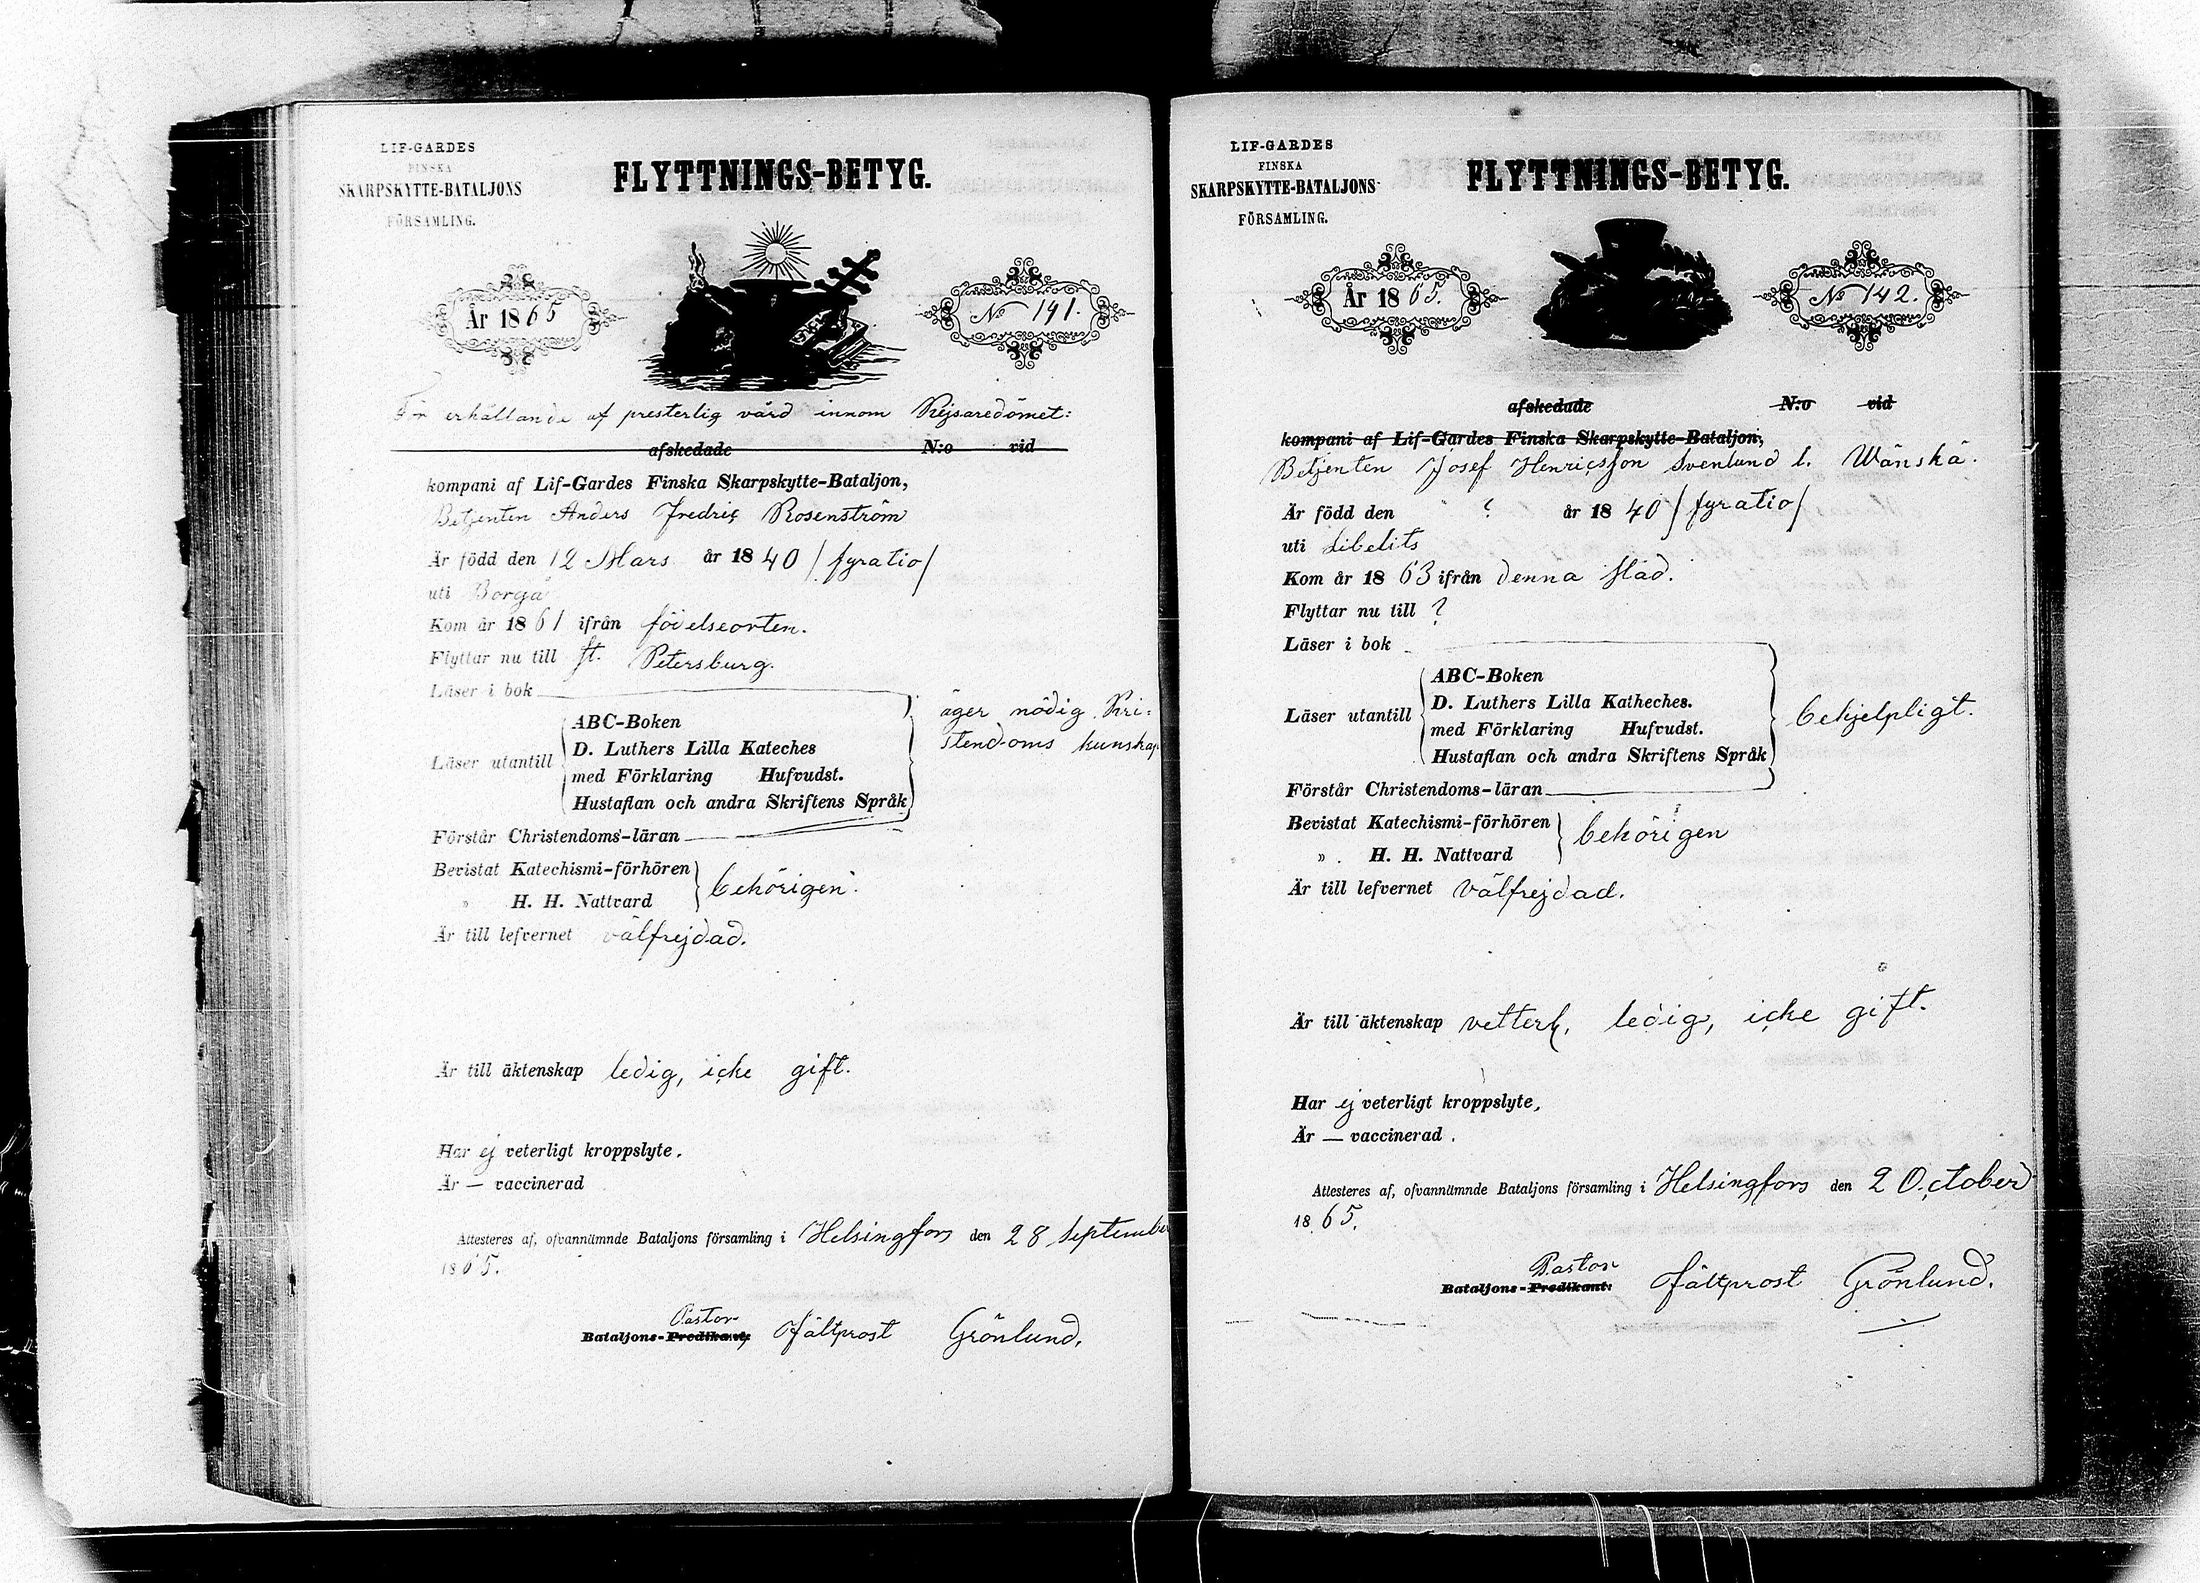 LIF-GARDES
FINSKA
SKARPSKYTTE-BATALJONS
FÖRSAMLING.
FLYTTNINGS-BETYG.
År 1865
No 141.
För erhållande af presterlig vård innom Kejsaredömet:
afskedade N:o vid
kompani af Lif-Gardes Finska Skarpskytte-Bataljon,
Betjenten Anders Fredric Rosenström
Är född den 12 Mars år 1840 /fyratio/
uti Borgå
Kom år 1861 ifrån födelseorten.
Flyttar nu till St. Petersburg.
Läser i bok
Läser utantill
ABC-Boken
D. Luthers Lilla Kateches
med Förklaring Hufvudst.
Hustaflan och andra Skriftens Språk
äger nödig Kri-
stendoms kunskap
Förstår Christendoms-läran
Bevistat Katechismi-förhören
" H. H. Nattvard
behörigen.
Är till lefvernet välfrejdad.
Är till äktenskap ledig, icke gift.
Har ej veterligt kroppslyte.
Är — vaccinerad
Attesteres af, ofvannämnde Bataljons församling i Helsingfors den 28 September
1865.
Pastor
Bataljons-Predikant, Fältprost Grönlund.
LIF-GARDES
FINSKA
SKARPSKYTTE-BATALJONS
FÖRSAMLING.
FLYTTNINGS-BETYG.
År 1865.
No 142.
afskedade N:o vid
kompani af Lif-Gardes Finska Skarpskytte-Bataljon,
Betjenten Josef Henricsson Svenlund l. Wänskä.
Är född den ? år 1840 /fyratio/
uti Libelits
Kom år 1863 ifrån denna stad.
Flyttar nu till ?
Läser i bok
Läser utantill
ABC-Boken
D. Luthers Lilla Katheches.
med Förklaring Hufvudst.
Hustaflan och andra Skriftens Språk
behjelpligt.
Förstår Christendoms-läran
Bevistat Katechismi-förhören
" H. H. Nattvard
behörigen
Är till lefvernet välfrejdad.
Är till äktenskap vetterl. ledig, icke gift.
Har ej veterligt kroppslyte,
Är — vaccinerad.
Attesteres af, ofvannämnde Bataljons församling i Helsingfors den 2 October
1865.
Pastor
Bataljons-Predikant: Fältprost Grönlund.